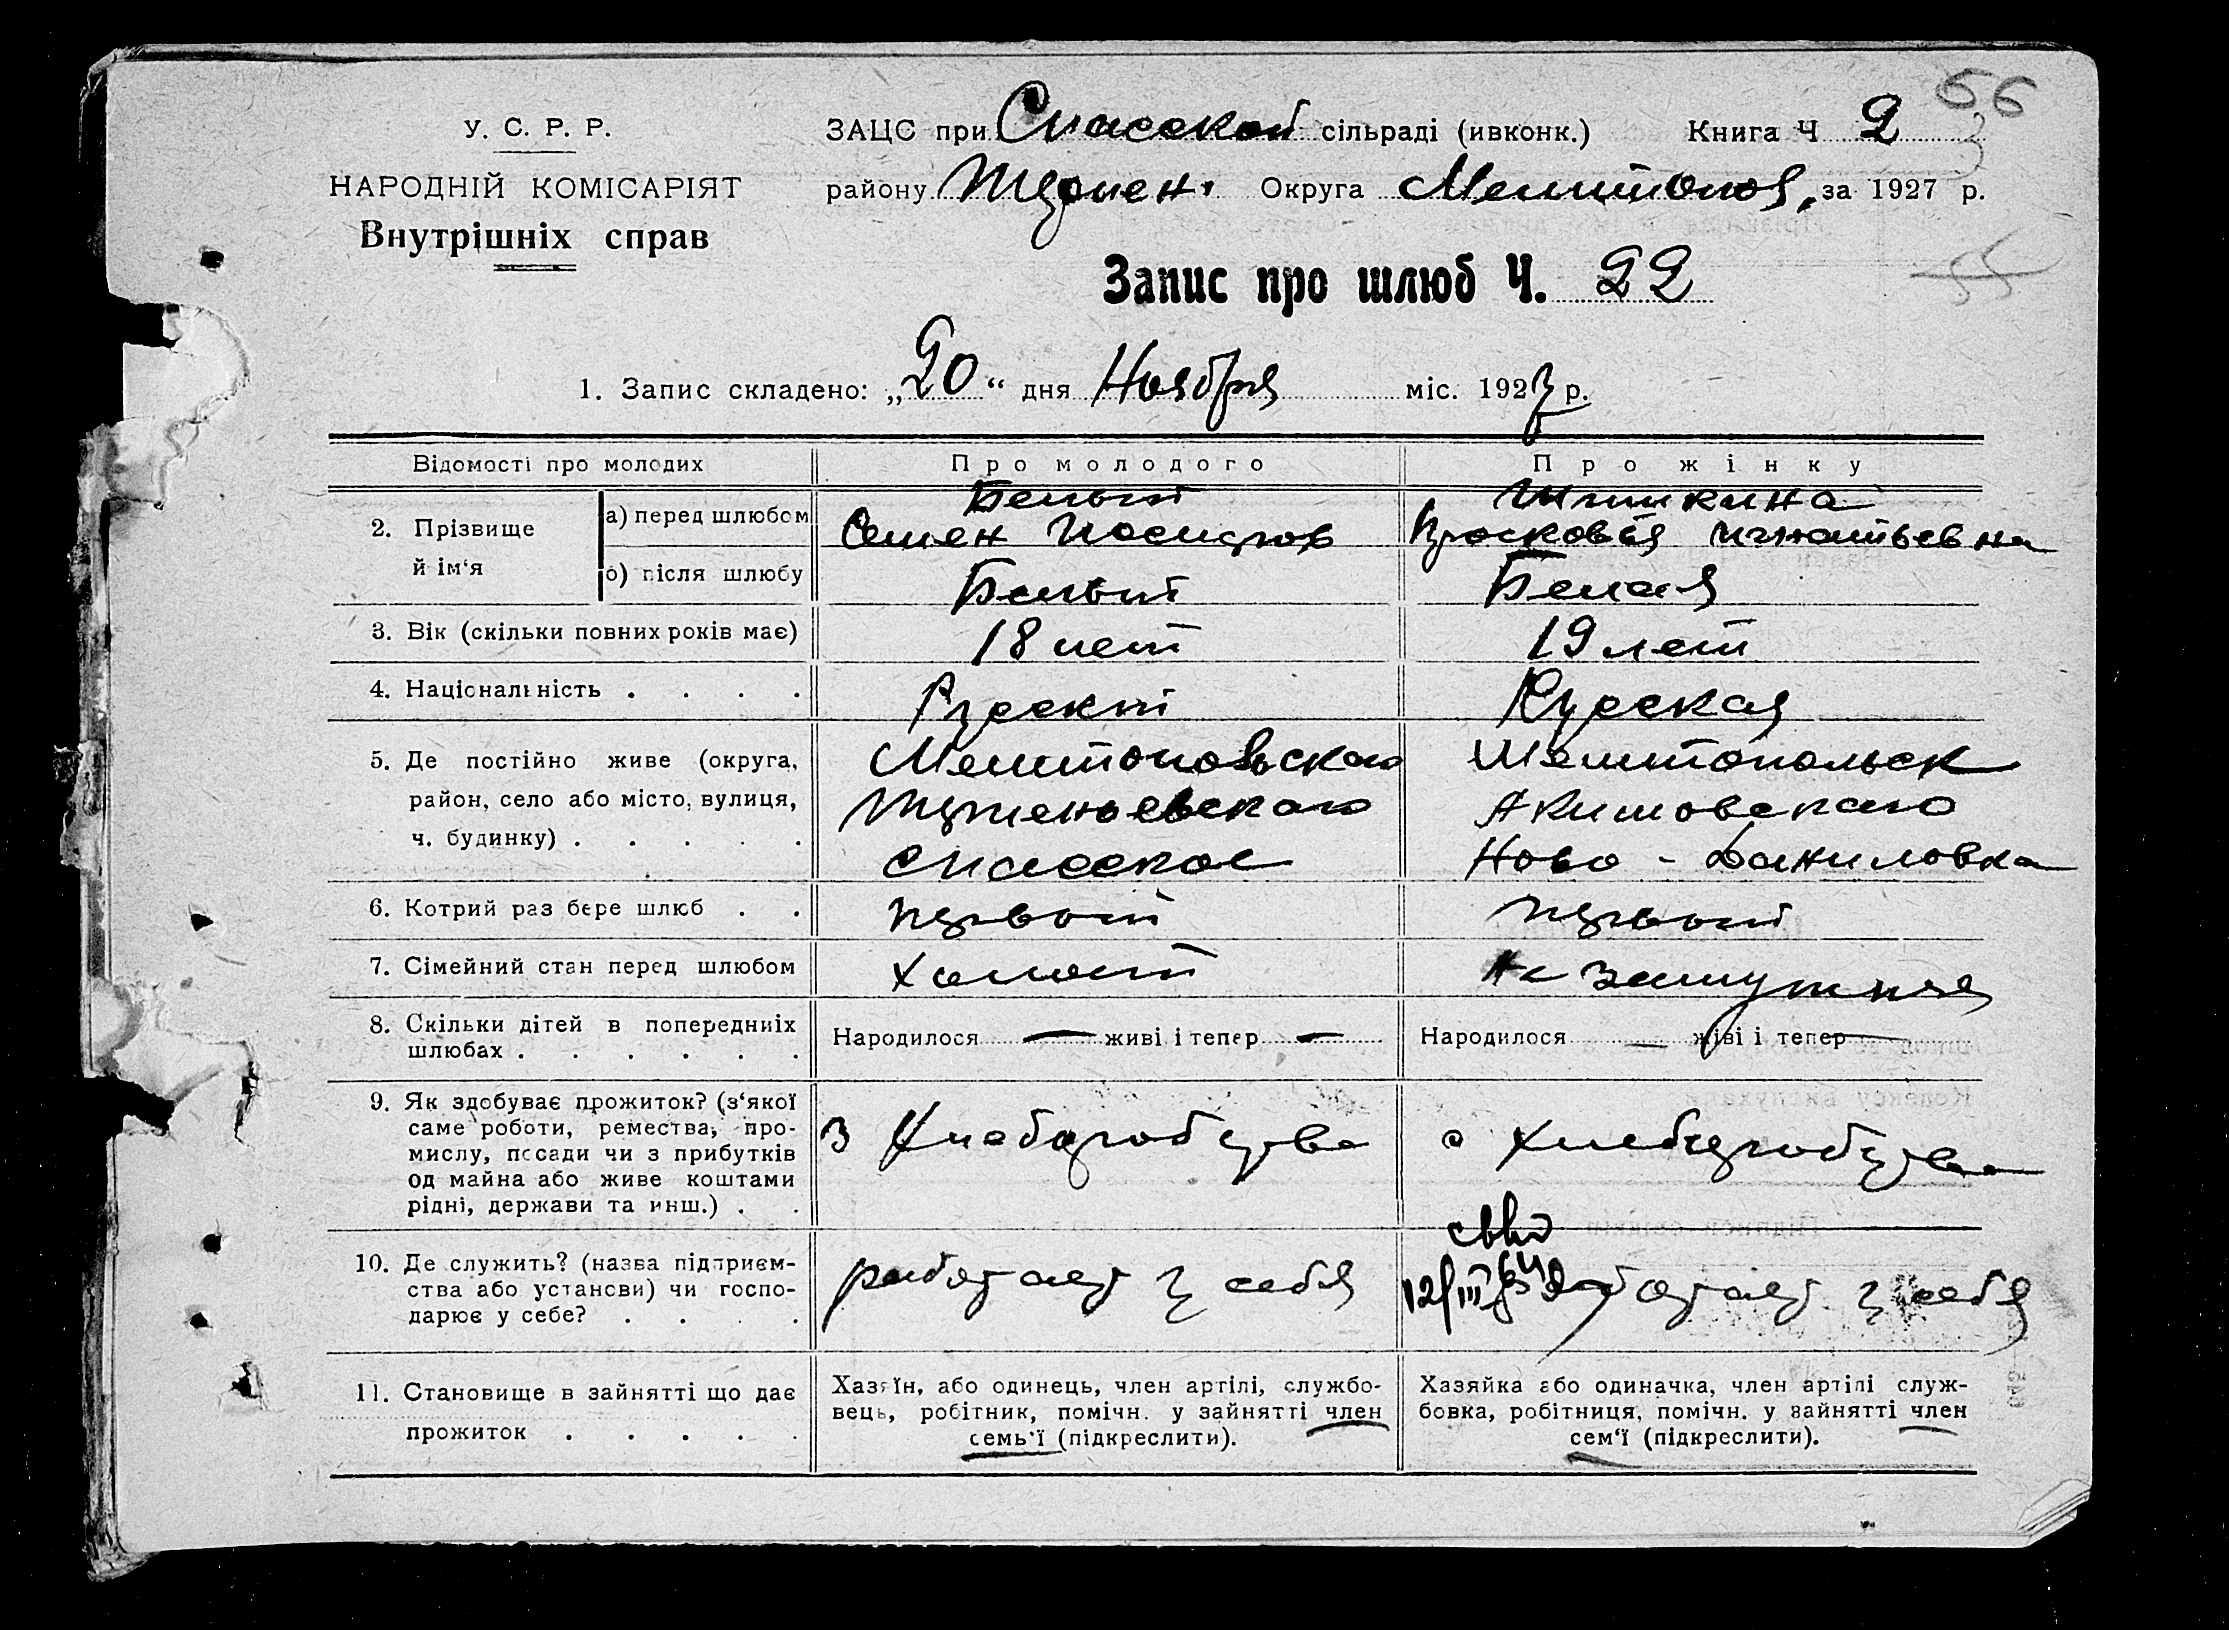 56
У. С. Р. Р.
НАРОДНІЙ КОМІСАРІЯТ
Внутрішніх справ
ЗАЦС при Спасской сільраді (ивконк.) Книга Ч 2
району Округа Мелитопол, за 1927 р.
Запис про шлюб Ч. 22
55
1. Запис складено: „20“ дня Ноября міс. 1927 р.
Відомості про молодих
Про молодого
Про жінку
2. Прізвище й ім‘я
а) перед шлюбом
Белый
Семен
Шишкина
Просковья Игнатьевна
б) після шлюбу
Белый
Белая
3. Вік (скільки повних років має)
18 лет
19 лет
4. Національність . . . .
Русский
Русская
5. Де постійно живе (округа,
район, село або місто, вулиця,
ч. будинку) . . . . .
Мелитопольского
Спасское
Мелитопольск
Акимовского
Ново - Даниловка
6. Котрий раз бере шлюб . .
первый
первый
7. Сімейний стан перед шлюбом
холост
не замужняя
8. Скільки дітей в попередниіх
шлюбах . . . . . .
Народилося — живі і тепер —
Народилося — живі і тепер —
9. Як здобуває прожиток? (з‘якої
саме роботи, ремества, про-
мислу, посади чи з прибутків
од майна або живе коштами
рідні, держави та инш.) . .
з хлеборобства
с хлеборобства
10. Де служить? (назва підприєм-
ства або установи) чи госпо-
дарює у себе? . . . .
работает у себя
12/III
работает у себя
11. Становище в зайнятті що дає
прожиток . . . . .
Хазяїн, або одинець, член артілі, службо-
вець, робітник, помічн. у зайнятті член
семь‘ї (підкреслити).
Хазяйка або одиначка, член артілі служ-
бовка, робітниця, помічн. у зайнятті член
сем‘ї (підкреслити).